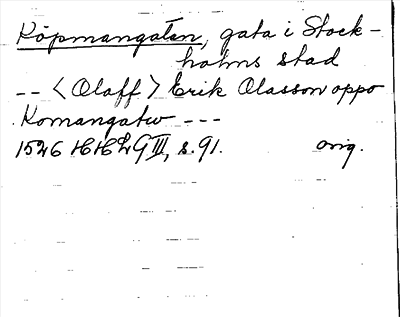 Köpmangatan, gata i Stock-
holms stad
-- <Olaff> Erik Olasson oppo
Komangatw ---
1526 HHLG III, s. 91. orig.